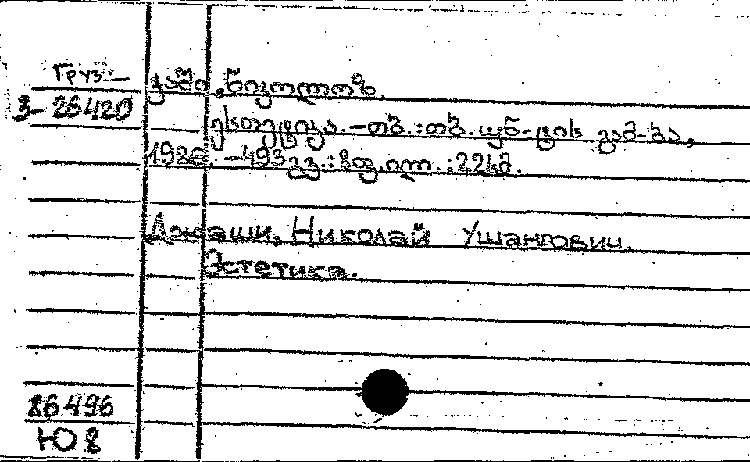 Груз.
3-26420
ჯაში, ნიკოლოზ.
ესთეტიკა. – თბ. : თბ. უნ-ტის გამ-ბა,
– 493 გვ. : 22 სმ.
Джаши, Николай Ушангович.
Эстетика.
86496
Ю8